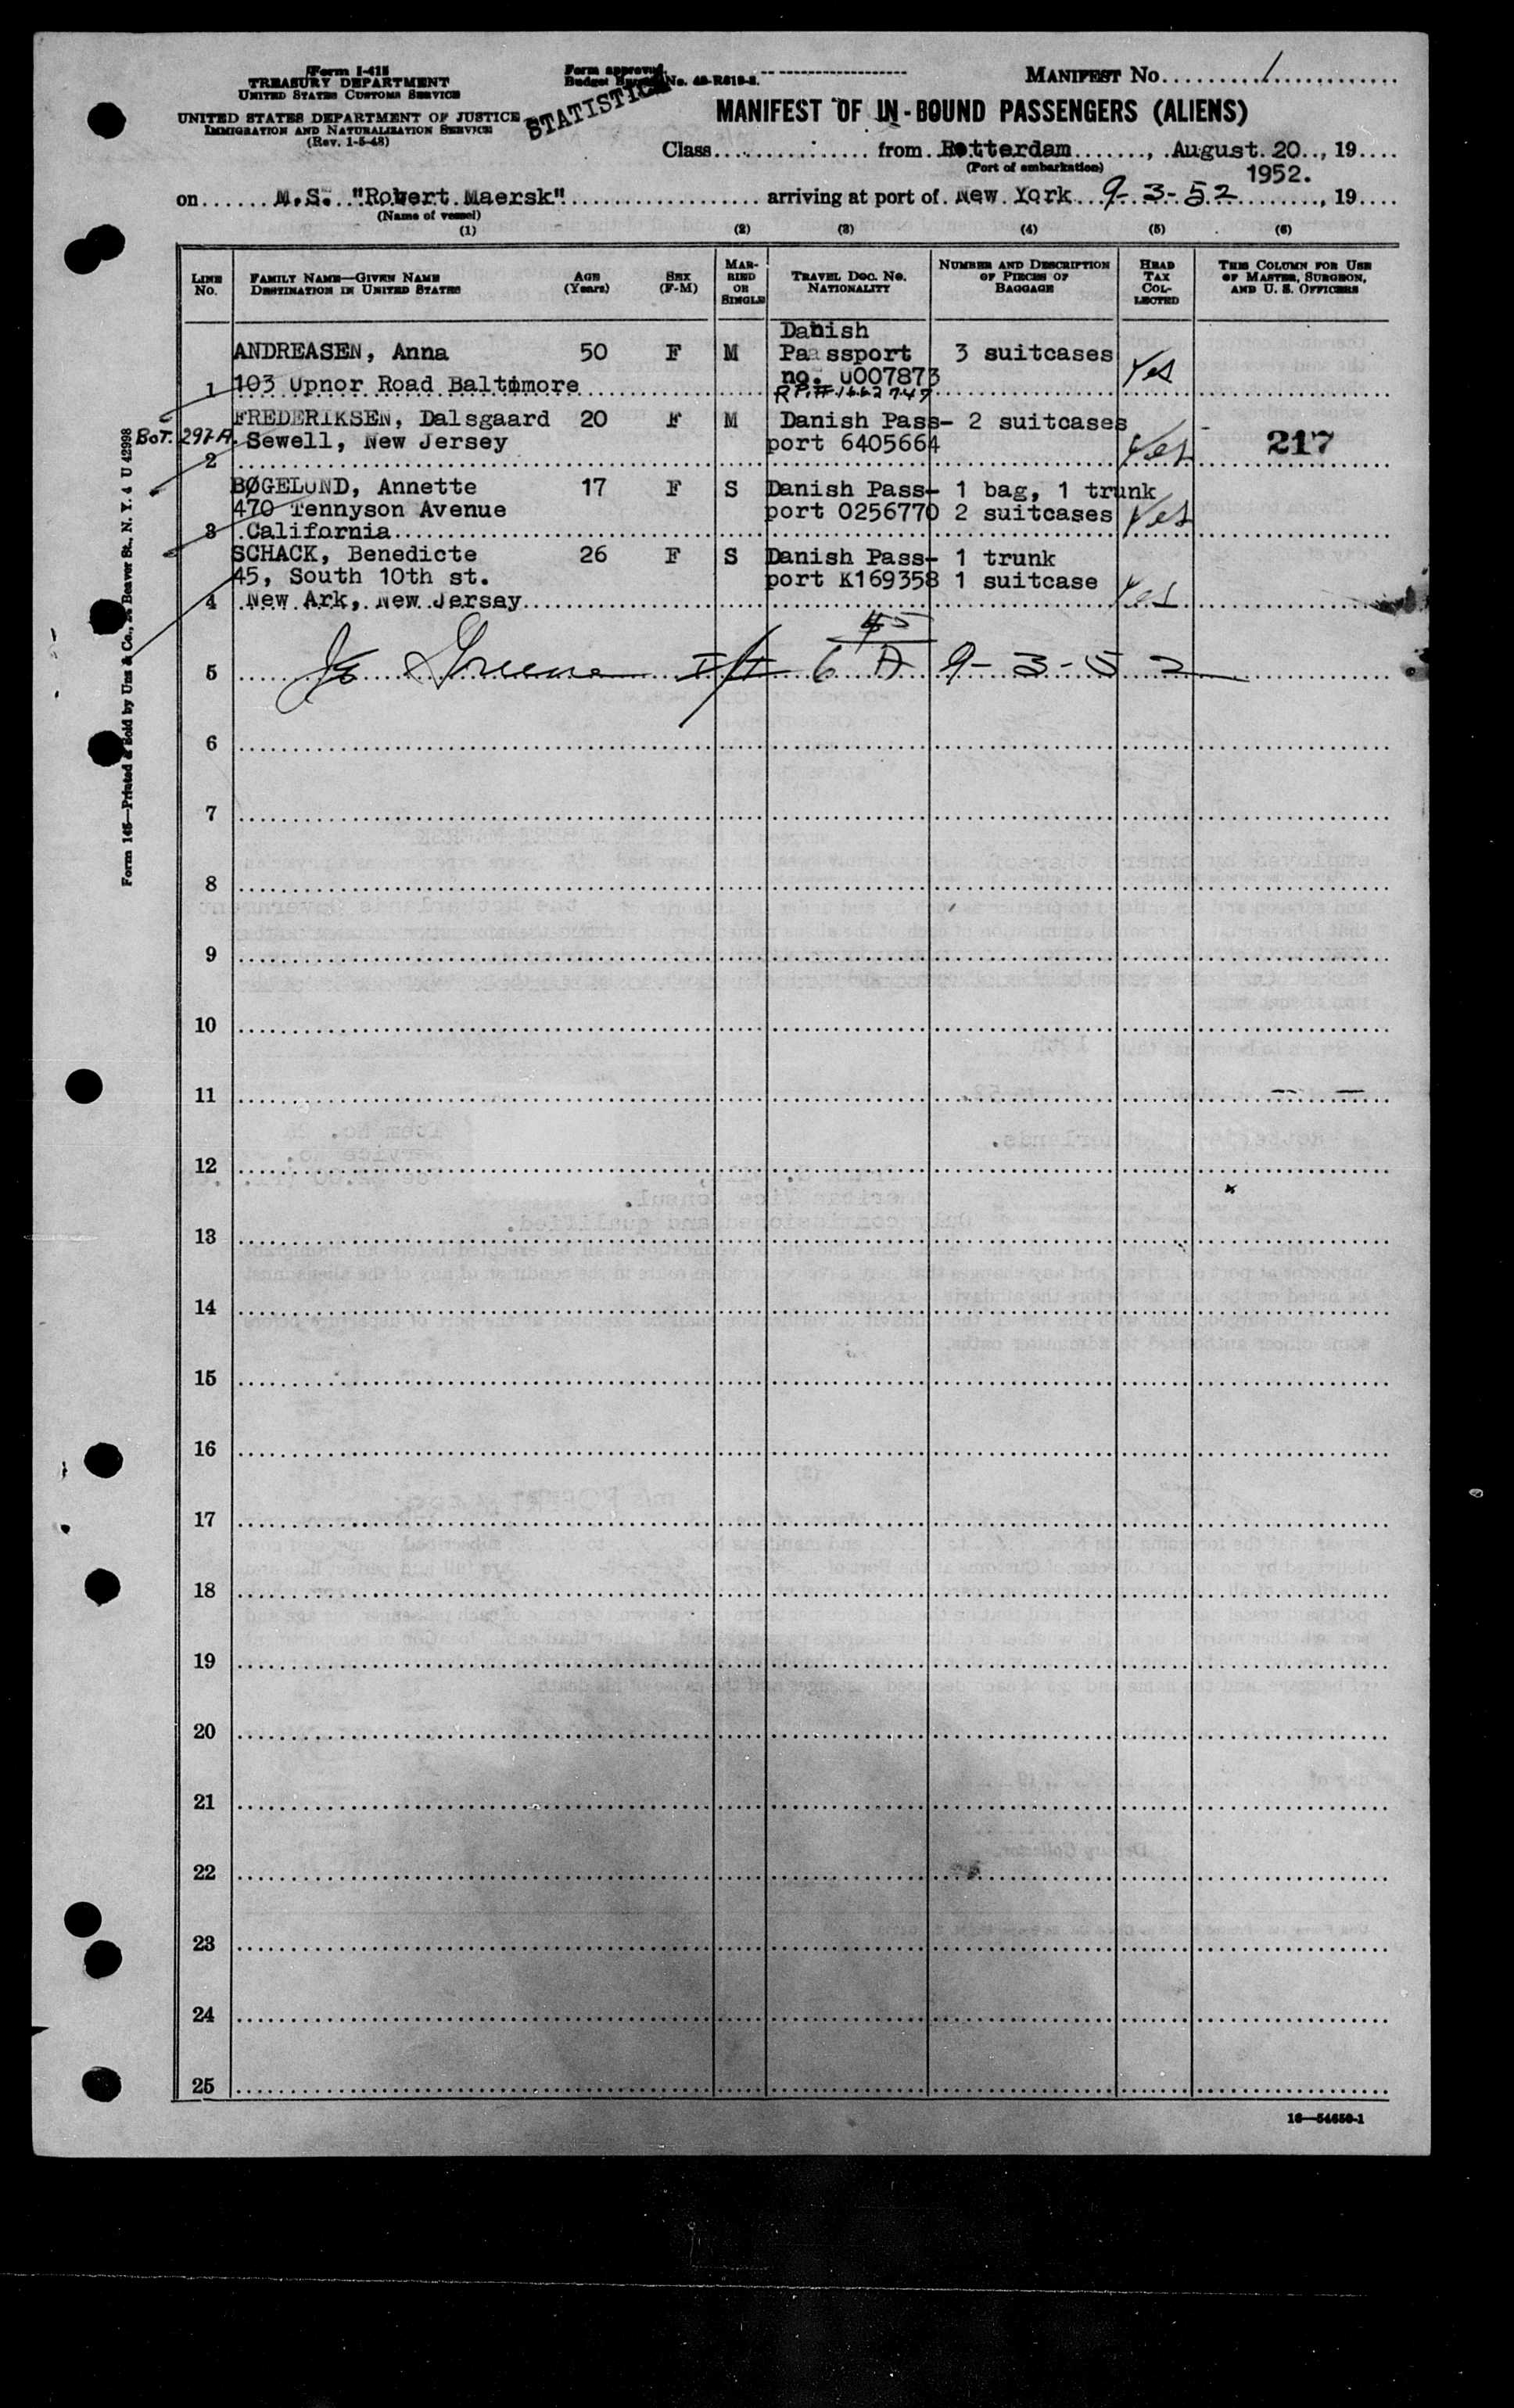 Form I-415
TREASURY DEPARTMENT
UNITED STATES CUSTOMS SERVICE
UNITED STATES DEPARTMENT OF JUSTICE
IMMIGRATION AND NATURALIZATION SERVICE
(Rev. 1-5-48)
Form approved.
Budget Bureau No. 43-R618-2.
STATISTICS
MANIFEST No. 1
MANIFEST OF IN-BOUND PASSENGERS (ALIENS)
Class from Rotterdam, August 20, 19
(Port of embarkation) 1952.
on M.S. "Robert Maersk" arriving at port of New York 9-3-52, 19
(Name of vessel)
(1) (2) (3) (4) (5) (6)
LINE NO. FAMILY NAME—GIVEN NAME DESTINATION IN UNITED STATES AGE (Years) SEX (F-M) MARRIED OR SINGLE TRAVEL DOC. NO. NATIONALITY NUMBER AND DESCRIPTION OF PIECES OF BAGGAGE HEAD TAX COLLECTED THIS COLUMN FOR USE OF MASTER, SURGEON, AND U. S. OFFICERS
Danish
ANDREASEN, Anna 50 F M Paassport 3 suitcases Yes
1 103 Upnor Road Baltimore no. U007873
FREDERIKSEN, Dalsgaard 20 F M Danish Pass- 2 suitcases
Sewell, New Jersey port 6405664 Yes 217
2
BØGELUND, Annette 17 F S Danish Pass- 1 bag, 1 trunk
470 Tennyson Avenue port 0256770 2 suitcases Yes
3 California
SCHACK, Benedicte 26 F S Danish Pass- 1 trunk
45, South 10th st. port K169358 1 suitcase Yes
4 New Ark, New Jersay
45
5 9-3-52
6
7
8
9
10
11
12
13
14
15
16
17
18
19
20
21
22
23
24
25
16—54650-1